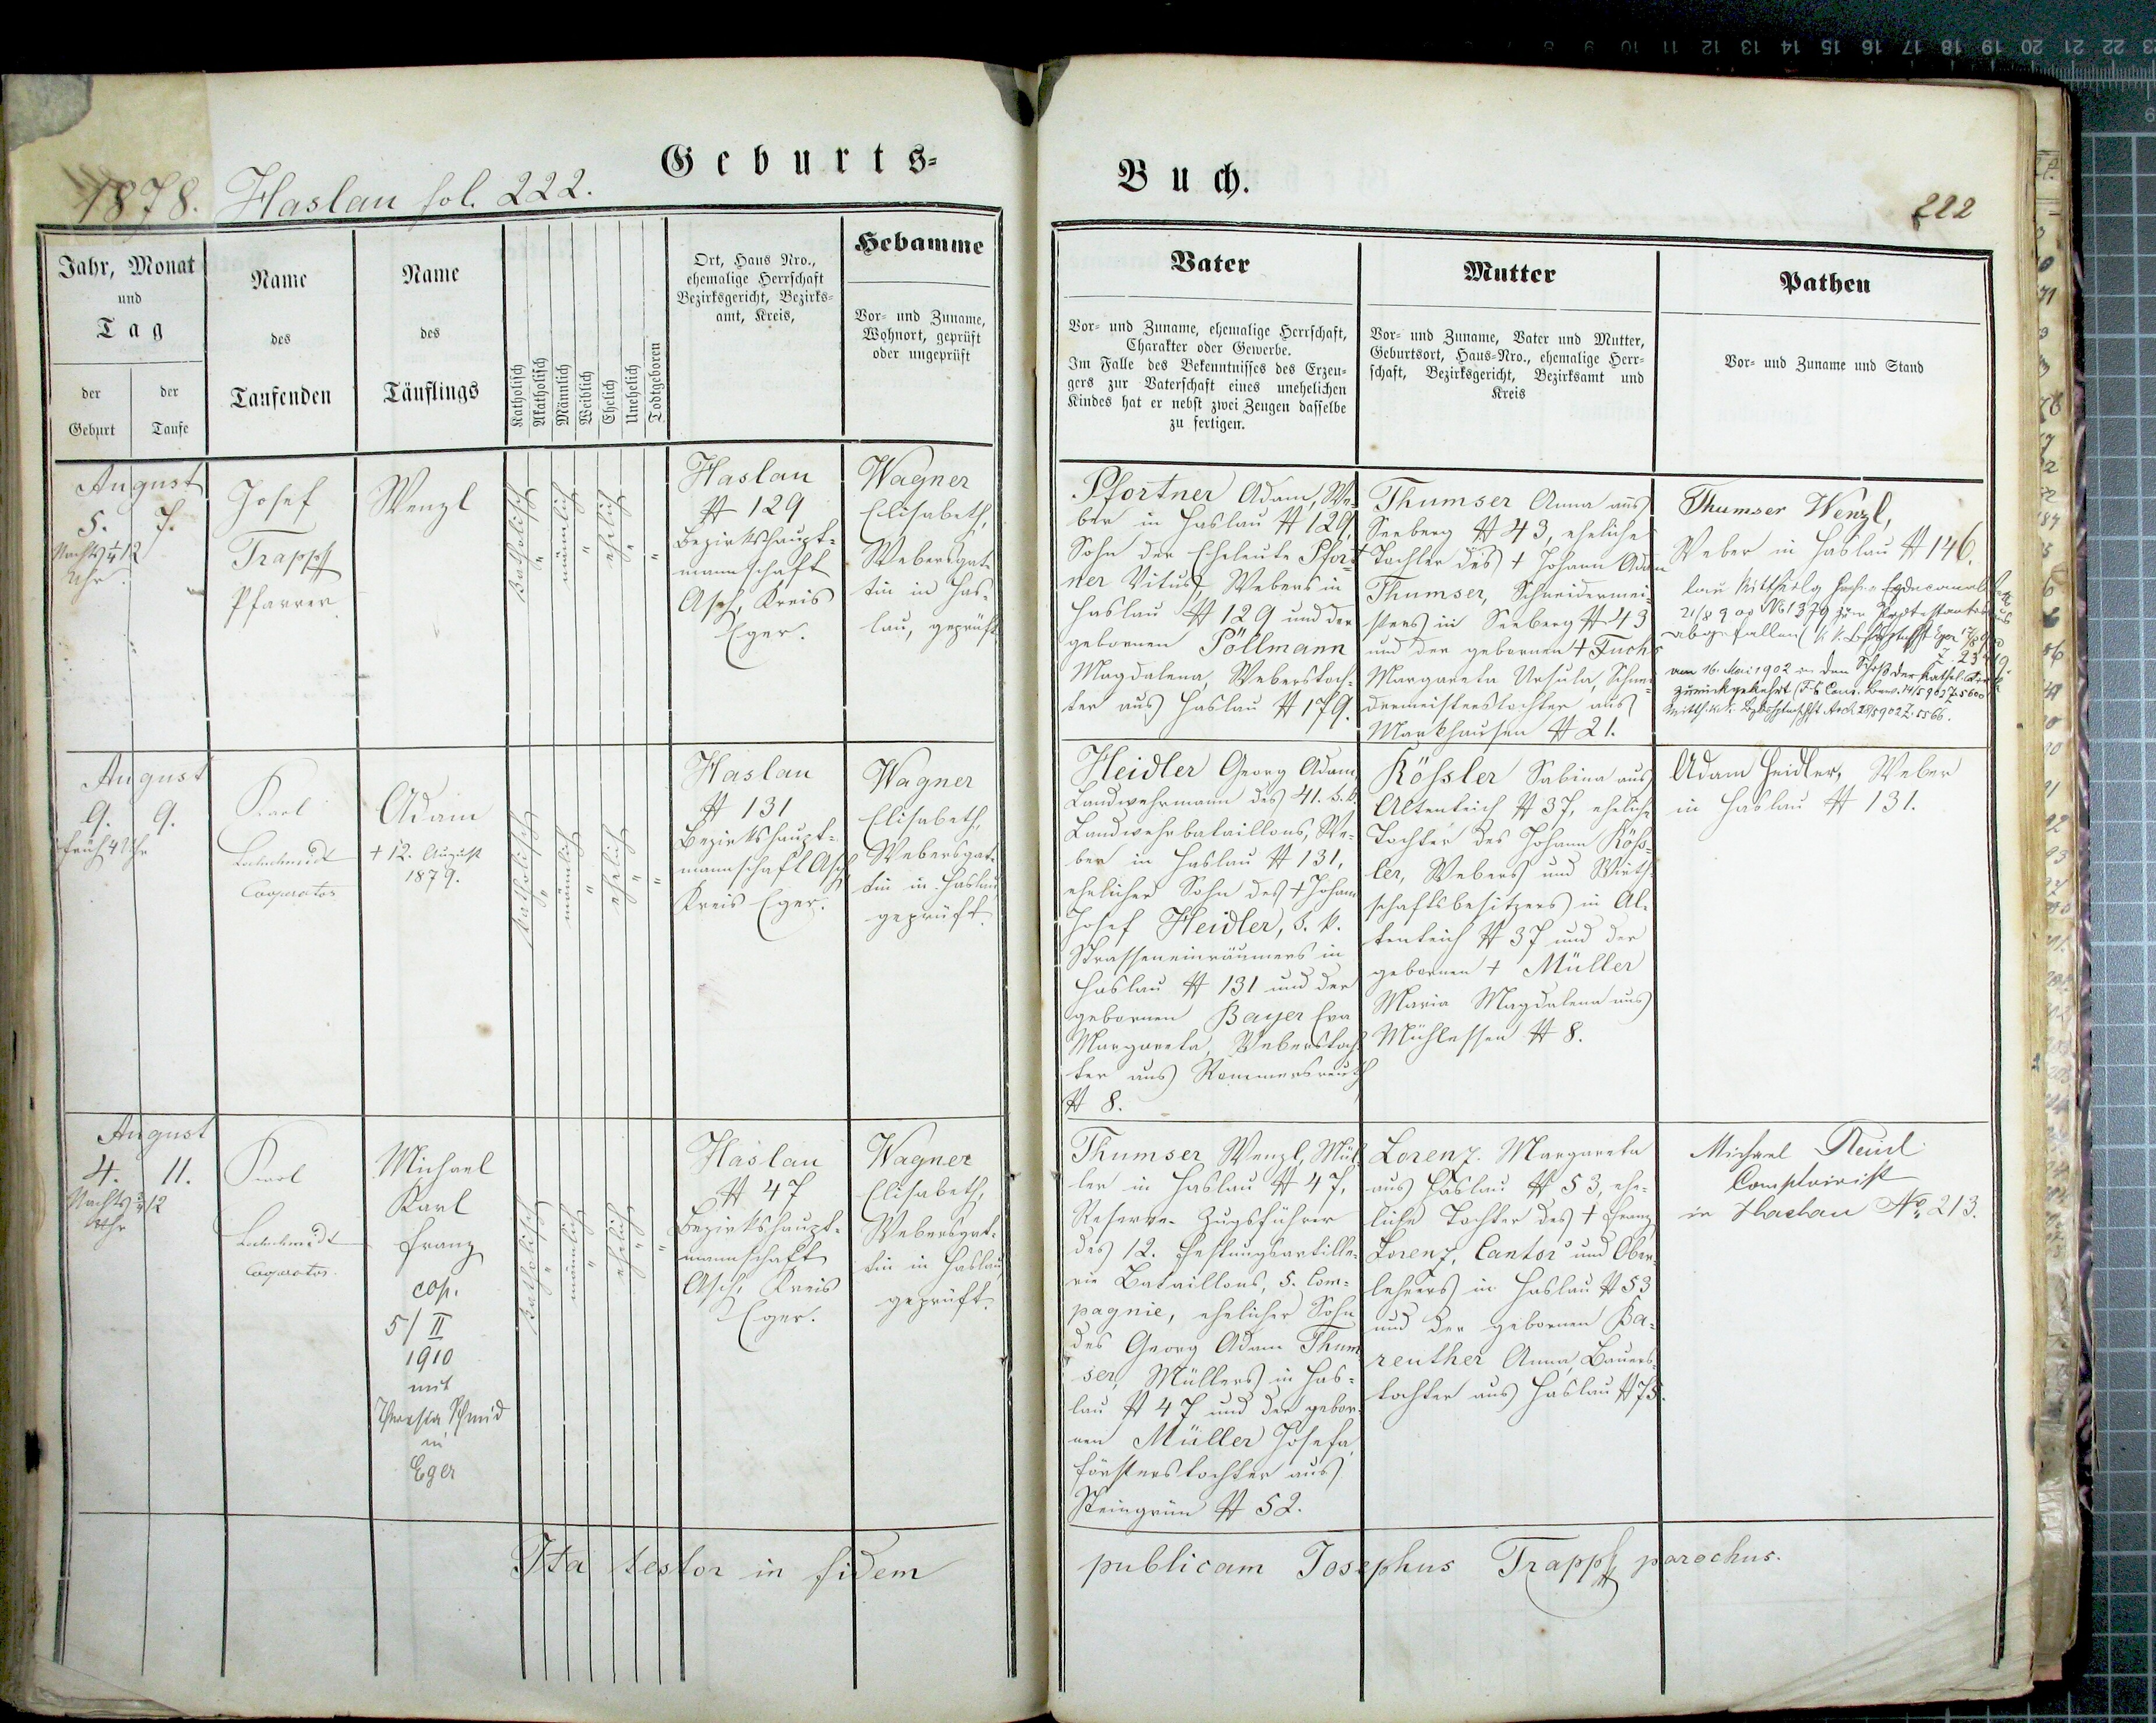 Geburts-
Buch.
1878. Haslau fol. 222.
222
Jahr, Monat
und
Tag
der
Geburt
der
Taufe
Name
des
Taufenden
Name
des
Täuflings
Katholisch
Akatholisch
Männlich
Weiblich
Ehelich
Unehelich
Todtgeboren
Ort, Haus Nro.,
ehemalige Herrschaft
Bezirksgericht, Bezirks-
amt, Kreis,
Hebamme
Vor- und Zuname,
Wohnort, geprüft
oder ungeprüft
Vater
Vor- und Zuname, ehemalige Herrschaft,
Charakter oder Gewerbe.
Im Falle des Bekenntnisses des Erzeu-
gers zur Vaterschaft eines unehelichen
Kindes hat er nebst zwei Zeugen dasselbe
zu fertigen.
Mutter
Vor- und Zuname, Vater und Mutter,
Geburtsort, Haus-Nro., ehemalige Herr-
schaft, Bezirksgericht, Bezirksamt und
Kreis
Pathen
Vor- und Zuname und Stand
August
5. 7.
Nachts 1/4 12
Uhr
Josef
Trapp
Pfarrer
Wenzl
Katholisch
"
männlich
"
ehelich
"
"
Haslau
# 129
Bezirkshaupt-
mannschaft
Asch, Kreis
Eger.
Wagner
Elisabeth,
Webersgat-
tin in Has-
lau, geprüft
Pfortner Adam, We-
ber in Haslau # 129,
Sohn der Eheleute Pfort-
ner Vitus, Webers in
Haslau # 129 und der
gebornen Pöllmann
Magdalena, Weberstoch-
ter aus Haslau # 179.
Thumser Anna aus
Seeberg # 43, eheliche
Tochter des + Johann Adam
Thumser, Schneidermei-
sters in Seeberg # 43
und der gebornen + Fuchs
Margareta Ursula, Schnei-
dermeisterstochter aus
Markhausen # 21.
Thumser Wenzl,
Weber in Haslau # 146.
21/8 900 No 1379 zum Protestantismus
abgefallen
am 16. Mai 1902 in den Schoß der kathol. Kirche
zurückgekehrt
August
9. 9.
früh 4 Uhr
Karl
Cooperator
Adam
+ 12. August
1879.
Katholisch
"
männlich
"
ehelich
"
"
Haslau
# 131
Bezirkshaupt-
mannschaft Asch,
Kreis Eger.
Wagner
Elisabeth,
Webersgat-
tin in Haslau,
geprüft.
Heidler Georg Adam,
Landwehrmann des 41. k. k.
Landwehrbataillons, We-
ber in Haslau # 131,
ehelicher Sohn des + Johann
Josef Heidler, k. k.
Strasseneinräumers in
Haslau # 131 und der
gebornen Bayer Eva
Margareta, Weberstoch-
ter aus Rommersreuth
# 8.
Kössler Sabina aus
Altenteich # 37, eheliche
Tochter des Johann Köss-
ler, Webers und Wirth-
schaftsbesitzers in Al-
tenteich # 37 und der
gebornen + Müller
Maria Magdalena aus
Mühlessen # 8.
Adam Heidler, Weber
in Haslau # 131.
August
4. 11.
Nachts 3/4 12
Uhr
Karl
Cooperator.
Michael
Karl
Franz
cop.
5/II
1910
mit
Theresia Schmid
in
Eger
Katholisch
"
männlich
"
ehelich
"
"
Haslau
# 47
Bezirkshaupt-
mannschaft
Asch, Kreis
Eger.
Wagner
Elisabeth,
Webersgat-
tin in Haslau,
geprüft.
Thumser Wenzl, Mül-
ler in Haslau # 47,
Reserve-Zugsführer
des 12. Festungsartille-
rie Bataillons, 5. Com-
pagnie, ehelicher Sohn
des Georg Adam Thum-
ser, Müllers in Has-
lau # 47 und der gebor-
nen Müller Josefa,
Försterstochter aus
Steingrün # 52.
Lorenz Margareta
aus Haslau # 53, ehe-
liche Tochter des + Franz
Lorenz, Cantors und Ober-
lehrers in Haslau # 53
und der gebornen Ba-
reuther Anna, Bauers-
tochter aus Haslau # 75.
Michael
Comptoirist
in Haslau No. 213.
Ita testor in fidem
publicam Josephus Trapp, parochus.